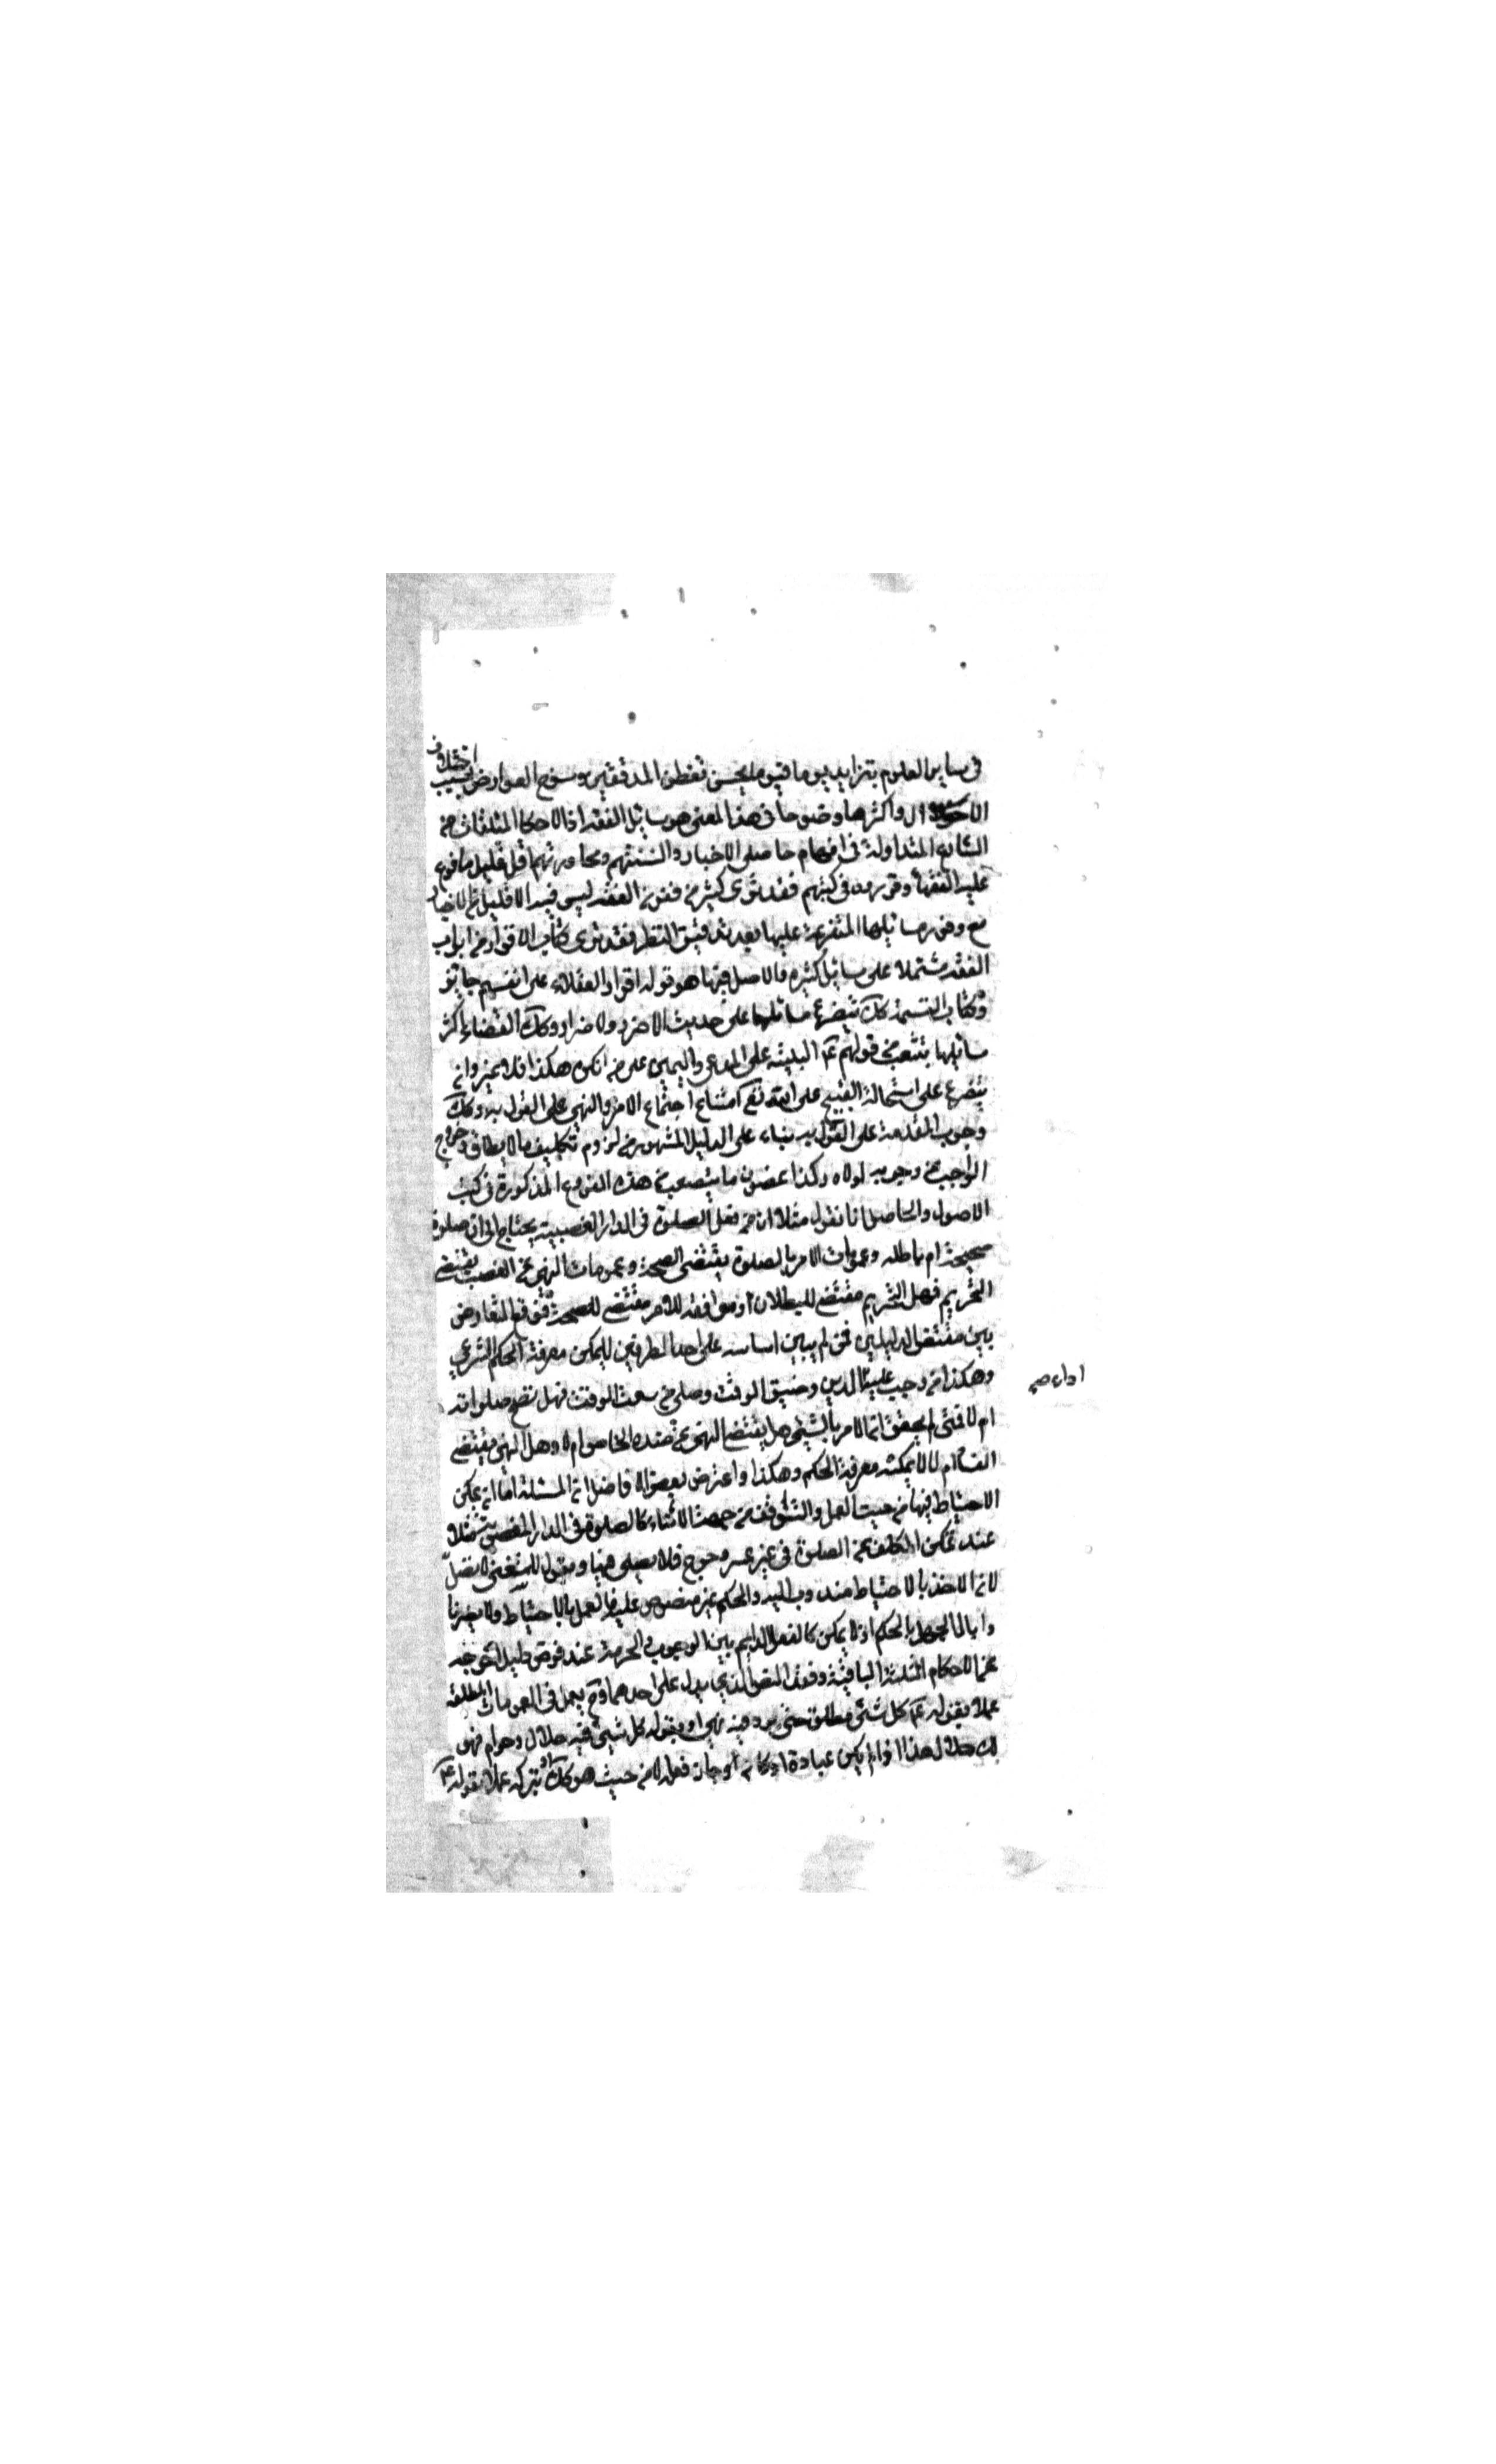 في ساير العلوم يتزايد يوما فيوما بحسن تفطن المدققين وسنوح العوارض بحسب اختلاف
الاحوال واكثرها وضوحا في هذا المعنى هو مسائل الفقه اذ الاحكام المتلقات من
الشارع المتداولة في افهام حاملي الاخبار والسنتهم ومحاورتهم اقل قليل ما فرع
عليه الفقهاء وقرروه في كتبهم فقد ترى كثير من فنون الفقه ليس فيه الا قليل من الاخبار
مع وفور مسائلها المتفرعة عليها بعد تدقيق النظر فقد ترى كتاب الاقرار من ابواب
الفقه مشتملا على مسائل كثيرة والاصل فيها هو قوله اقرار العقلاء على انفسهم جائز
وكتاب القسمة كك يتفرع مسائلها على حديث لا ضرر ولا ضرار وكك القضاء اكثر
مسائلها يتشعب من قولهم ع البينة على المدعي واليمين على من انكر وهكذا فلا غرو ان
يتفرع على استحالة القبيح على الله تع امتناع اجتماع الامر والنهي على القول به وكك
وجوب المقدمة على القول به بناء على الدليل المشهور من لزوم تكليف ما لا يطاق وخروج
الواجب عن وجوبه لولاه وكذا غصون ما يتشعب من هذه الفروع المذكورة في كتب
الاصول والحاصل انا نقول مثلا ان من فعل الصلوة في الدار الغصبية يحتاج الى ان صلوته
صحيحة ام باطله وعمومات الامر بالصلوة يقتضي الصحة وعمومات النهي عن الغصب يقتضي
التحريم فهل التحريم مقتض للبطلان او موافقة للامر مقتض للصحة فوقع التعارض
بين مقتضى الدليلين فمن لم يبين اساسه على احد الطرفين لا يمكن معرفة الحكم الشرعي
وهكذا من وجب عليه الدين وضيق الوقت وصلى في سعة الوقت فهل تصح صلواته
اداء صح
ام لا فمتى لم يحقق ان الامر بالشيء هل يقتضي النهي عن ضده الخاص ام لا وهل النهي يقتضي
الفساد ام لا لا يمكنه معرفة الحكم وهكذا واعترض بعض الافاضل ان المسئلة اما ان يمكن
الاحتياط فيها من حيث العمل والتوقف من جهة الافتاء كالصلوة في الدار المغصوبة مثلا
عند تمكن المكلف من الصلوة في غيره من غير حرج فلا يصلي هنا ويقول للمستفتي لا تصل
لان الاخذ بالاحتياط مندوب اليه والحكم غير منصوص عليه فالعمل بالاحتياط ولا يضرنا
الجهل بالحكم اذ لا يمكن كالفعل الدائر بين الوجوب والحرمة عند فرض دليل اخرجه
عن الاحكام الثلثة الباقية وفقد النص الذي يدل على احدهما وح يعمل في العمومات المطلقة
عملا بقوله ع كل شئ مطلق حتى يرد فيه نهي او بقوله كل شيئ فيه حلال وحرام فهو
لك حلال هذا اذا لم يكن عبادة او كان او جاز فعله لا من حيث هو كك او بتركه عملا بقوله ع